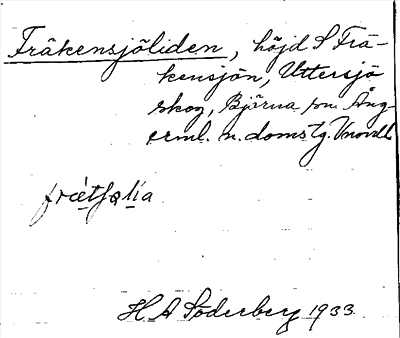 Fräkensjöliden, höjd S Frä-
kensjön, Uttersjö
skog, Björna sn Ång-
erml. n. domstg. Vnorrl.
frǽtʃəlía
H A Söderberg 1933